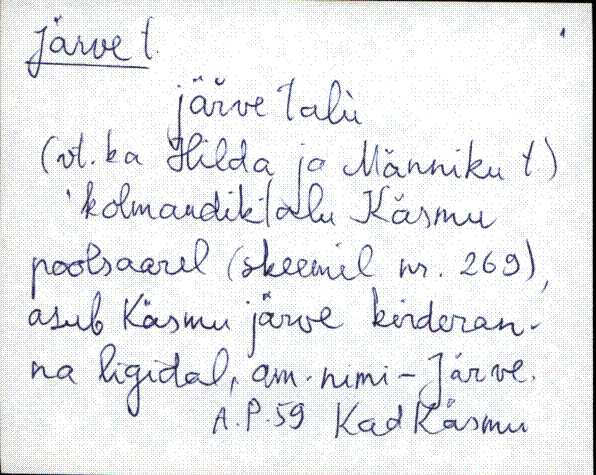 Järve t.
järve talù
(vt. ka Hilda ja Männiku t.)
'kolmandik-talu Käsmu
poolsaarel (skeemil nr. 269),
asub Käsmu järve kirderan-
na ligidal, am. nimi - Järve.
A.P. 59 Kad Käsmu